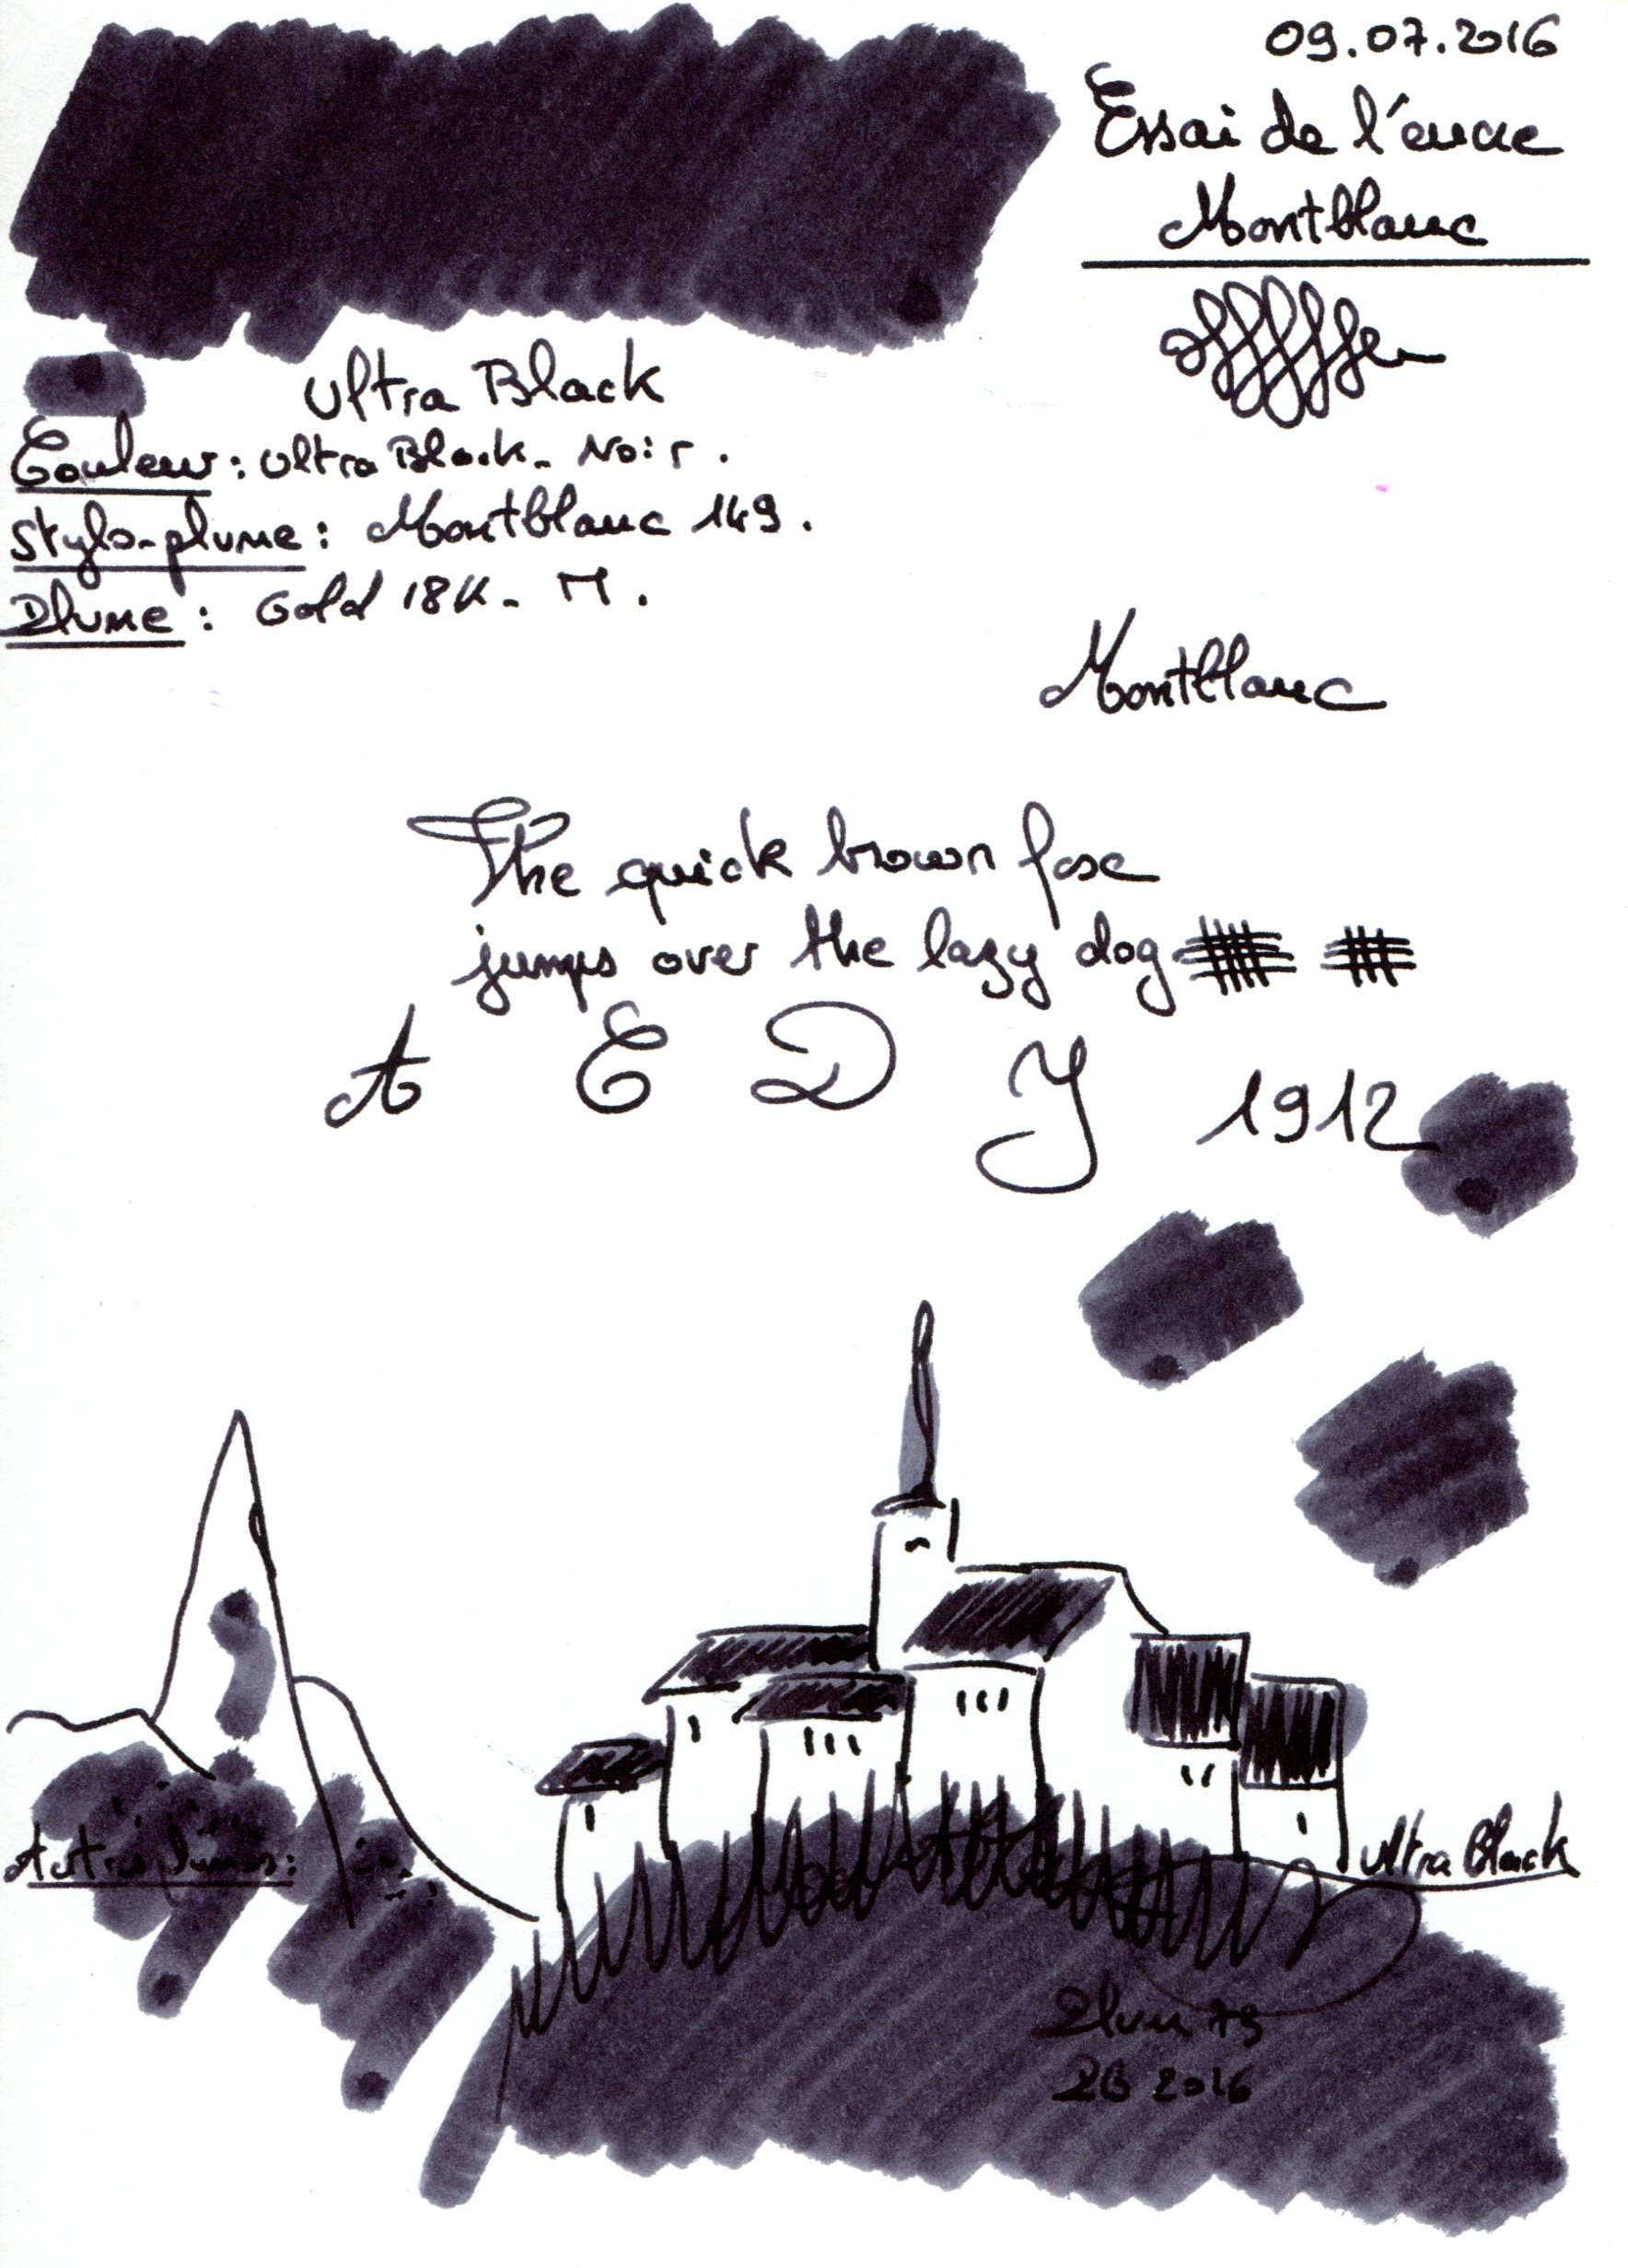 09.07.2016
Essai de l'encre
Montblanc
Ultra Black
Couleur : Ultra Black - Noir.
Stylo-plume : Montblanc 149.
Plume : Gold 18K - M.
Montblanc
The quick brown fox
jumps over the lazy dog
A E D J 1912
Ultra Black
Autres
Plum 79
2016